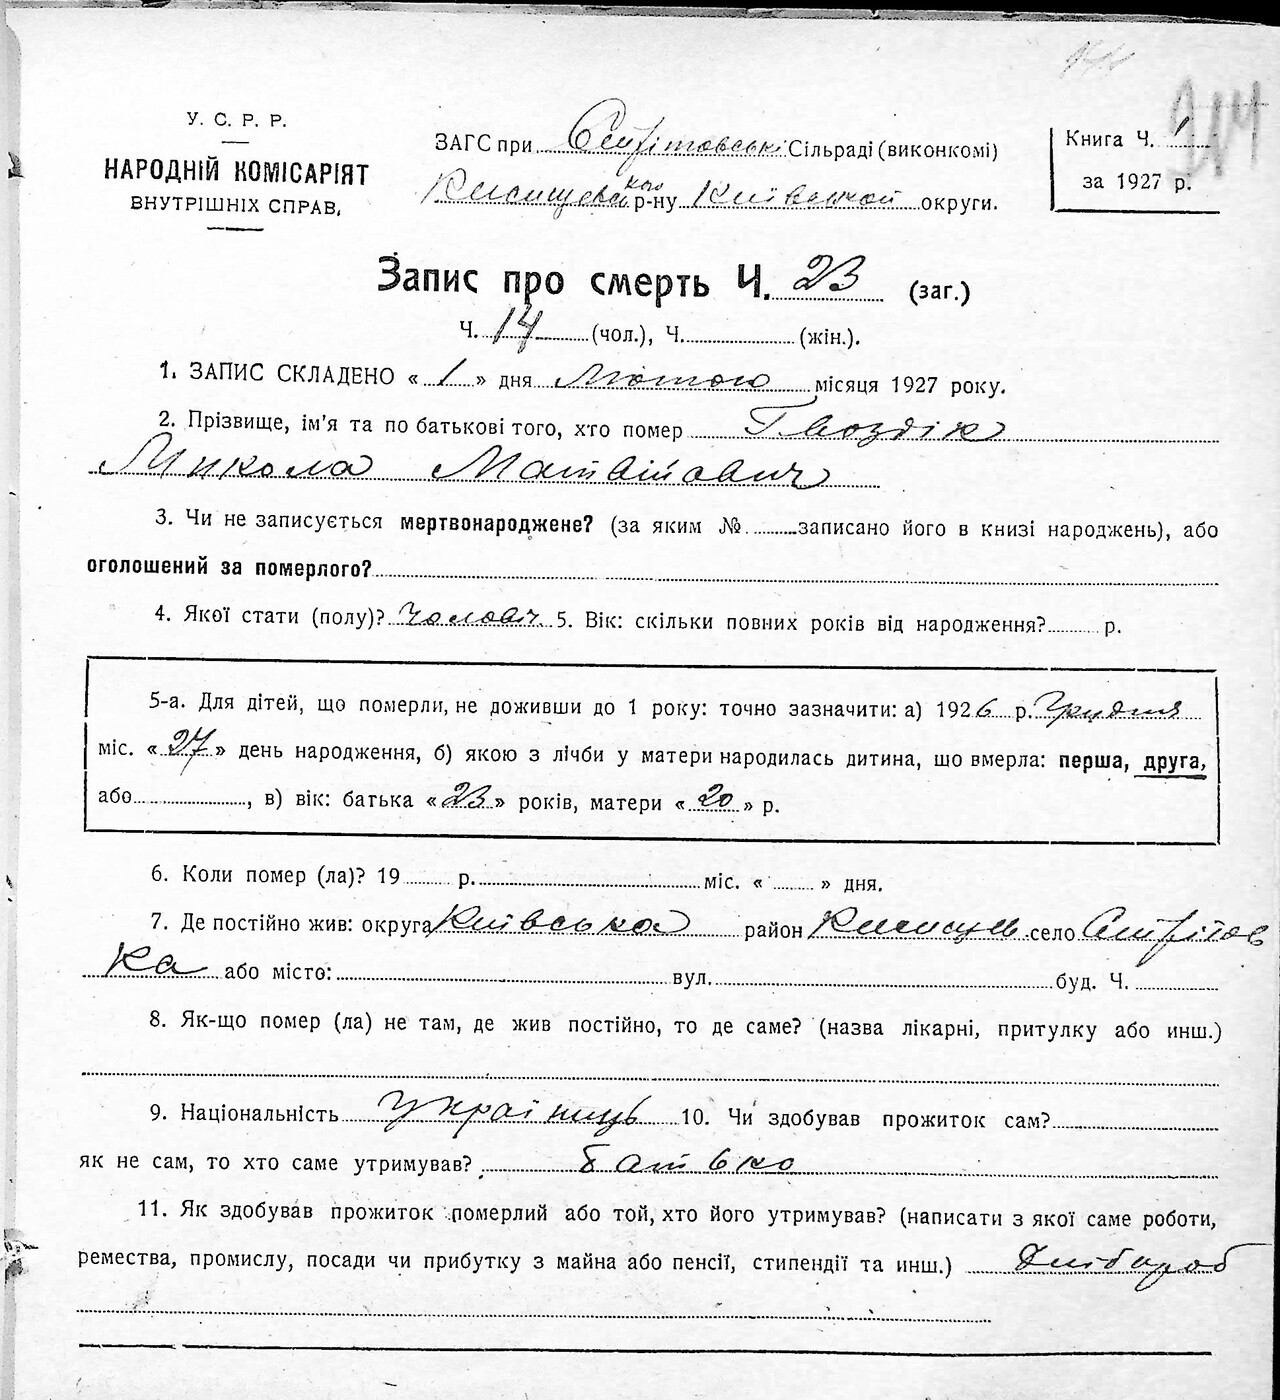 У. С. Р. Р.
НАРОДНІЙ КОМІСАРІЯТ
ВНУТРІШНІХ СПРАВ,
ЗАГС при Сільраді (виконкомі)
р-ну Київської округи.
Книга Ч. 1
за 1927 р.
214
Запис про смерть Ч. 23 (заг.)
Ч. 14 (чол.), Ч. (жін.).
1. ЗАПИС СКЛАДЕНО « 1 » дня Лютого місяця 1927 року.
2. Прізвище, ім'я та по батькові того, хто помер Гвоздік
Микола Матвійович
3. Чи не записується мертвонароджене? (за яким № записано його в книзі народжень), або
оголошений за померлого?
4. Якої стати (полу)? чоловіч. 5. Вік: скільки повних років від народження? р.
5-а. Для дітей, що померли, не доживши до 1 року: точно зазначити: а) 1926 р. Грудня
міс. « 27 » день народження, б) якою з лічби у матери народилась дитина, що вмерла: перша, друга,
або , в) вік: батька « 23 » років, матери « 20 » р.
6. Коли помер (ла)? 19 р. міс. « » дня.
7. Де постійно жив: округа Київська район село
ка або місто: вул. буд. Ч.
8. Як-що помер (ла) не там, де жив постійно, то де саме? (назва лікарні, притулку або инш.)
9. Національність Українць 10. Чи здобував прожиток сам?
як не сам, то хто саме утримував? батько
11. Як здобував прожиток померлий або той, хто його утримував? (написати з якої саме роботи,
ремества, промислу, посади чи прибутку з майна або пенсії, стипендії та инш.) Хлібороб